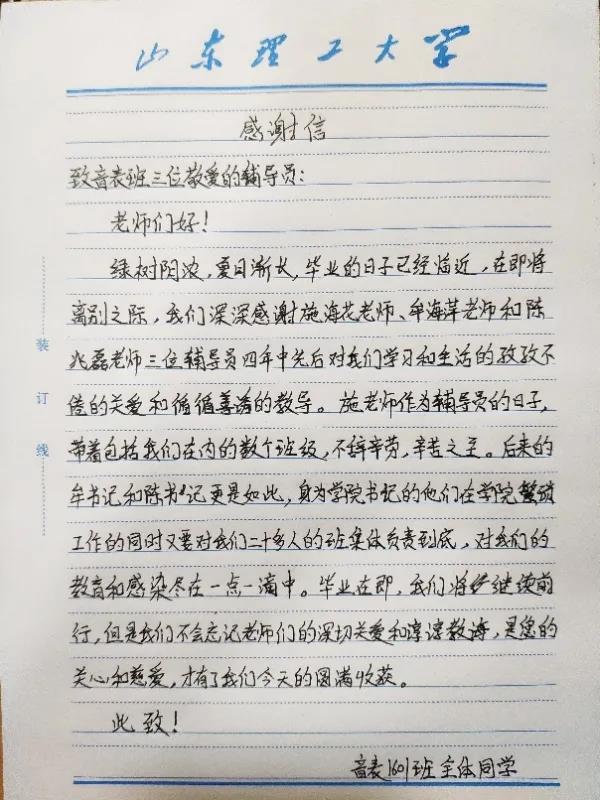 山东理工大学
感谢信
致音表班三位敬爱的辅导员：
老师们好！
绿树阴浓，夏日渐长，毕业的日子已经临近，在即将
离别之际，我们深深感谢施海花老师、牟海萍老师和陈
兆磊老师三位辅导员四年中先后对我们学习和生活的孜孜不
倦的关爱和循循善诱的教导。施老师作为辅导员的日子，
带着包括我们在内的数个班级，不辞辛劳，辛苦之至。后来的
牟书记和陈书记更是如此，身为学院书记的他们在学院繁琐
工作的同时又要对我们二十多人的班集体负责到底，对我们的
教育和感染尽在一点一滴中。毕业在即，我们将继续前
行，但是我们不会忘记老师们的深切关爱和谆谆教诲，是您的
关心和慈爱，才有了我们今天的圆满收获。
此致！
音表1601班全体同学
装
订
线